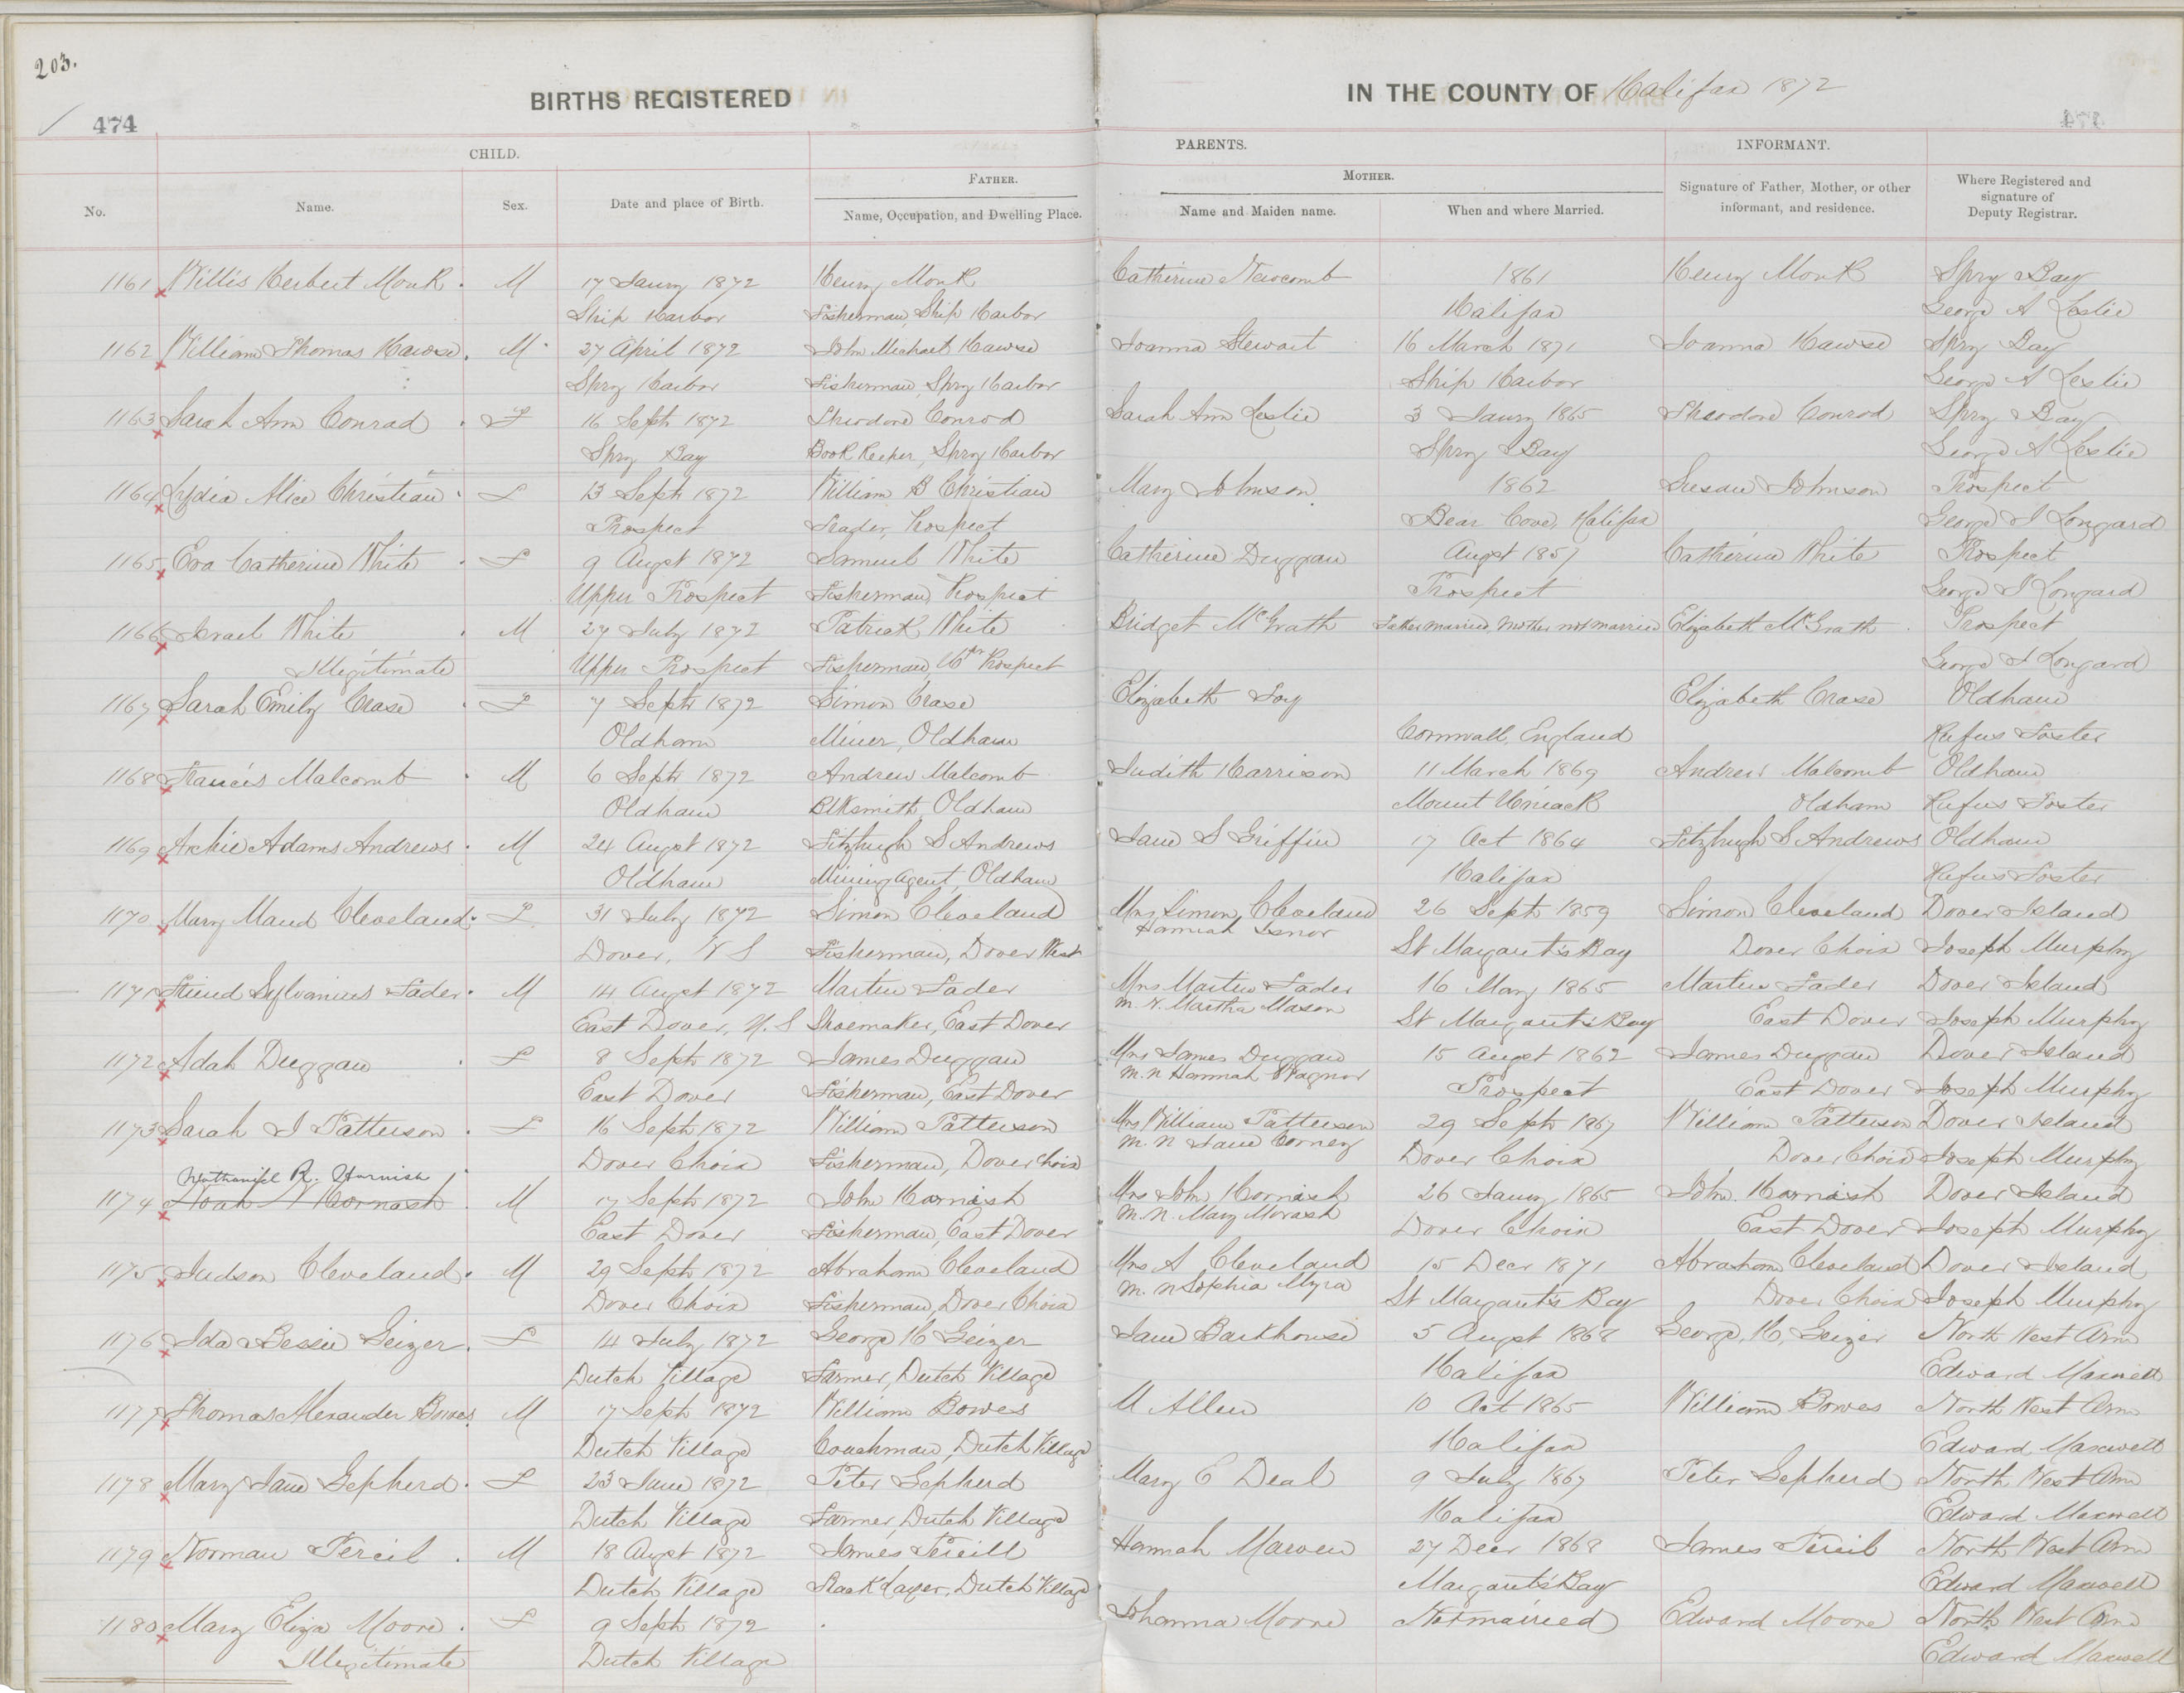 203.
474
BIRTHS REGISTERED
IN THE COUNTY OF Halifax 1872
CHILD.
PARENTS.
INFORMANT.
No.
Name.
Sex.
Date and place of Birth.
FATHER.
Name, Occupation, and Dwelling Place.
MOTHER.
Name and Maiden name.
When and where Married.
Signature of Father, Mother, or other
informant, and residence.
Where Registered and
signature of
Deputy Registrar.
1161 Willis Herbert Monk M 17 Jany 1872 Henry Monk Catherine Newcomb 1861 Henry Monk Spry Bay
Ship Harbor Fisherman, Ship Harbor Halifax George A Leslie
1162 William Thomas Hawse M 27 April 1872 John Michael Hawse Joanna Stewart 16 March 1871 Joanna Hawse Spry Bay
Spry Harbor Fisherman, Spry Harbor Ship Harbor George A Leslie
1163 Sarah Ann Conrad F 16 Sept 1872 Theodore Conrod Sarah Ann Leslie 3 Jany 1865 Theodore Conrod Spry Bay
Spry Bay Book Keeper, Spry Harbor Spry Bay George A Leslie
1164 Lydia Alice Christian F 13 Sept 1872 William B Christian Mary Johnson 1862 Susan Johnson Prospect
Prospect Trader, Prospect Bear Cove, Halifax George I Longard
1165 Eva Catherine White F 9 Augst 1872 Samuel White Catherine Duggan Augst 1857 Catherine White Prospect
Upper Prospect Fisherman, Prospect Prospect George I Longard
1166 Israel White M 27 July 1872 Patrick White Bridget McGrath Father married, Mother not married Elizabeth McGrath Prospect
Illegitimate Upper Prospect Fisherman, Prospect George I Longard
1167 Sarah Emily Crase F 7 Sept 1872 Simon Crase Elizabeth Joy Elizabeth Crase Oldham
Oldham Miner, Oldham Cornwall, England Rufus Foster
1168 Francis Malcomb M 6 Sept 1872 Andrew Malcomb Judith Harrison 11 March 1869 Andrew Malcomb Oldham
Oldham Blksmith, Oldham Mount Uniack Oldham Rufus Foster
1169 Archie Adams Andrews M 24 Augst 1872 Fitzhugh S Andrews Jane S Griffin 17 Oct 1864 Fitzhugh S Andrews Oldham
Oldham Mining Agent, Oldham Halifax Rufus Foster
1170 Mary Maud Cleveland F 31 July 1872 Simon Cleveland Mrs Simon Cleveland 26 Sept 1859 Simon Cleveland Dover Island
Hannah Isnor
Dover, N S Fisherman, Dover West St Margaret's Bay Dover Choix Joseph Murphy
1171 Sylvanius Fader M 14 Augst 1872 Martin Fader Mrs Martin Fader 16 May 1865 Martin Fader Dover Island
M. N. Martha Mason
East Dover, N. S Shoemaker, East Dover St Margaret's Bay East Dover Joseph Murphy
1172 Adah Duggan F 8 Sept 1872 James Duggan Mrs James Duggan 15 Augst 1862 James Duggan Dover Island
M. N Hannah Wagnor
East Dover Fisherman, East Dover Prospect East Dover Joseph Murphy
1173 Sarah I Patterson F 16 Sept 1872 William Patterson Mrs William Patterson 29 Sept 1867 William Patterson Dover Island
M. N Jane Corney
Dover Choix Fisherman, Dover Choix Dover Choix Dover Choix Joseph Murphy
Nathaniel R. Harnish
1174 Noah N Hornash M 17 Sept 1872 John Harnish Mrs John Harnish 26 Jany 1865 John Harnish Dover Island
M. N. Mary Morash
East Dover Fisherman, East Dover Dover Choix East Dover Joseph Murphy
1175 Judson Cleveland M 29 Sept 1872 Abraham Cleveland Mrs A Cleveland 15 Decr 1871 Abraham Cleveland Dover Island
M. N Sophia Myra
Dover Choix Fisherman, Dover Choix St Margaret's Bay Dover Choix Joseph Murphy
1176 Ida Bessie Geizer F 14 July 1872 George H Geizer Jane Barkhouse 5 Augst 1868 George, H, Geizer North West Arm
Dutch Village Farmer, Dutch Village Halifax Edward Maxwell
1177 Thomas Alexander Bowes M 17 Sept 1872 William Bowes M Allen 10 Oct 1865 William Bowes North West Arm
Dutch Village Coachman, Dutch Village Halifax Edward Maxwell
1178 Mary Jane Gepherd F 23 June 1872 Peter Gepherd Mary C Deal 9 July 1867 Peter Gepherd North West Arm
Dutch Village Farmer, Dutch Village Halifax Edward Maxwell
1179 Norman Pereil M 18 Augst 1872 James Pereill Hannah Marven 27 Decr 1868 James Pereil North West Arm
Dutch Village Dutch Village Margaret's Bay Edward Maxwell
1180 Mary Eliza Moore F 9 Sept 1872 Johanna Moore Not married Edward Moore North West Arm
Illegitimate Dutch Village Edward Maxwell